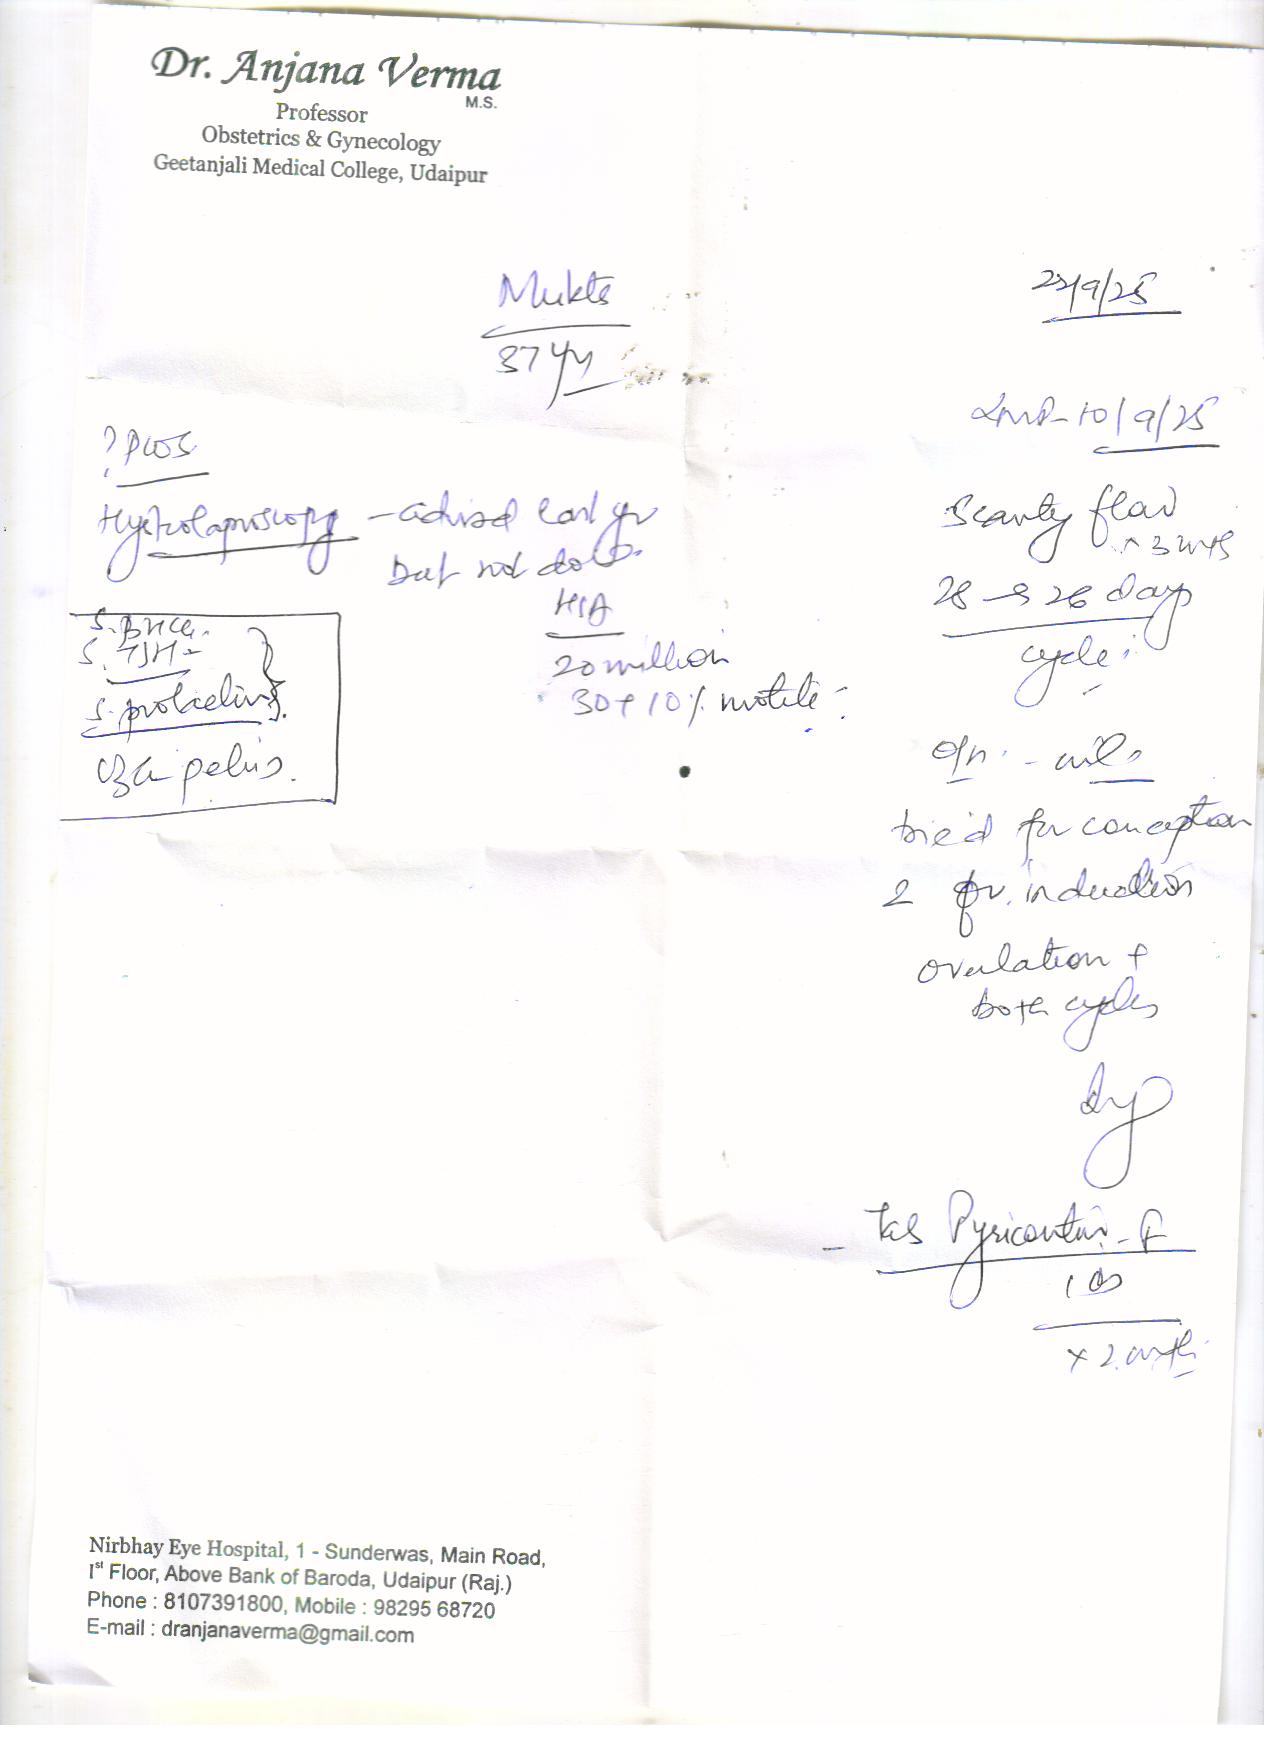 Dr. Anjana Verma
M.S.
Professor
Obstetrics & Gynecology
Geetanjali Medical College, Udaipur
Mukta
37 yr
/9/25
LMP - 10/9/25
Scanty flow
x 3 mths
28 → 26 days
cycle
tried for conception
2 induction
ovulation +
both cycles
- Tab Pyricontin - F
1 OD
x 2 mnth
? PCOS
- advised last yr
but not done
HSA
20 million
30 + 10% motile
S.
S. TSH
S. prolactin
USG pelvis.
Nirbhay Eye Hospital, 1 - Sunderwas, Main Road,
Ist Floor, Above Bank of Baroda, Udaipur (Raj.)
Phone : 8107391800, Mobile : 98295 68720
E-mail : dranjanaverma@gmail.com